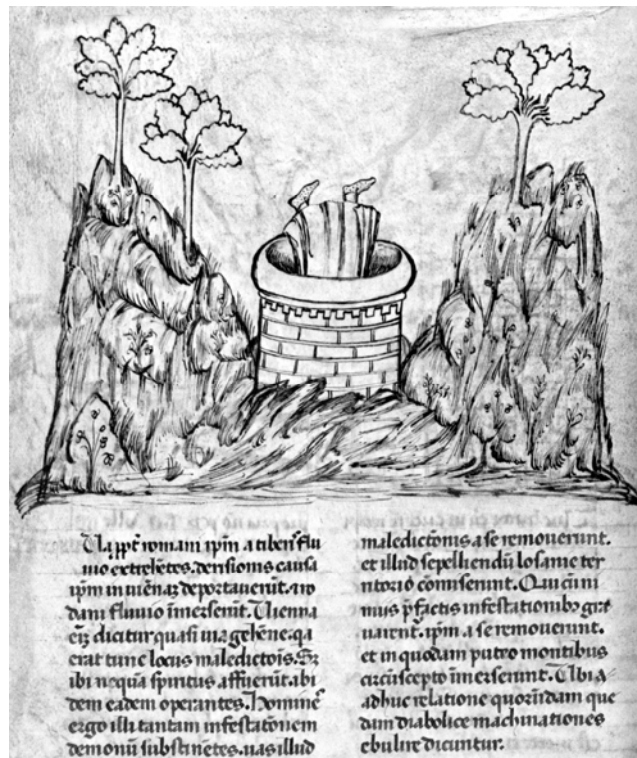 Qua ꝓpt̄ romani ip̄m a tiberi flu
uio extrahētes. derisionis causa
ip̄m in uiēnaȝ deportauerūt. ⁊ ro
dani fluuio īmerserūt. Uienna
eīȝ dicitur quasi uia gehēne. qa
erat tunc locus maledictiōis. Sȝ
ibi nequā spiritus affuerūt. ibi
dem eadem operantes. Homines
ergo illi tantam infestatōnem
demonū sustinētes. uas illud
maledictionis a se remouerunt.
et illud sepelliendū losane ter
ritorio cōmiserunt. Qui cū ni
mis p̄factis infestationibȝ gͣ
uarent᷑. ip̄m a se remouerunt.
et in quodam puteo montibus
circūsepto īmerserunt. Ubi
adhuc relatione quorūdam que
dam diabolice machinationes
ebulire dicuntur.